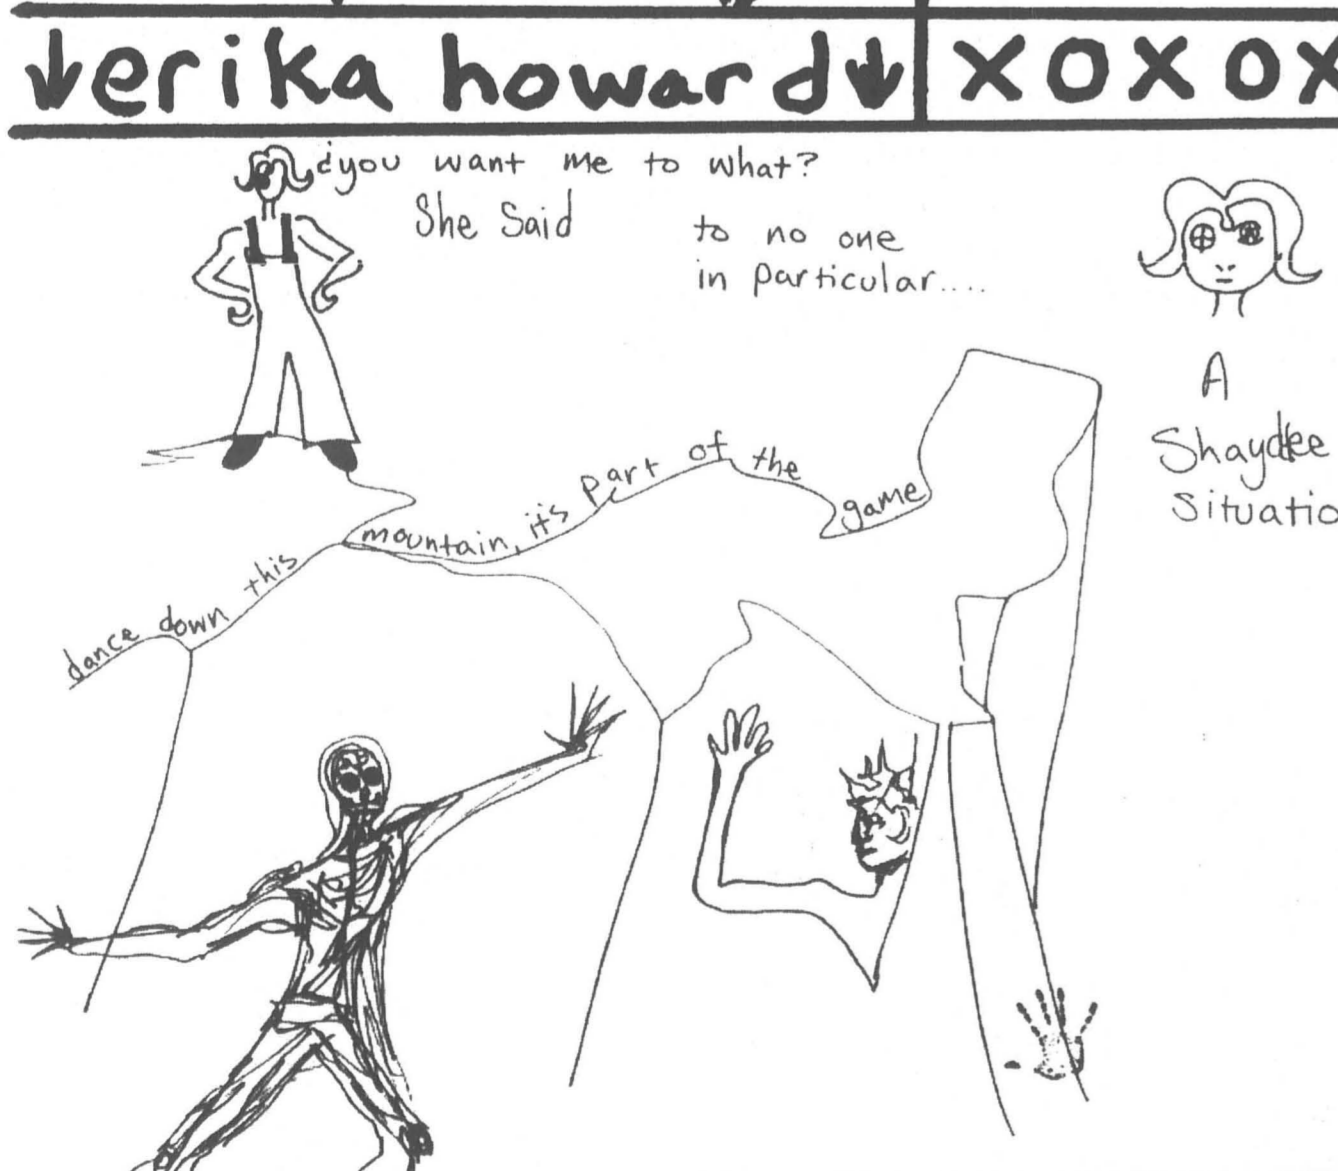 ↓erika howard↓ XOXOX
¿you want me to what?
She Said
to no one
in particular....
A
Situatio
dance down this mountain, it's part of the game